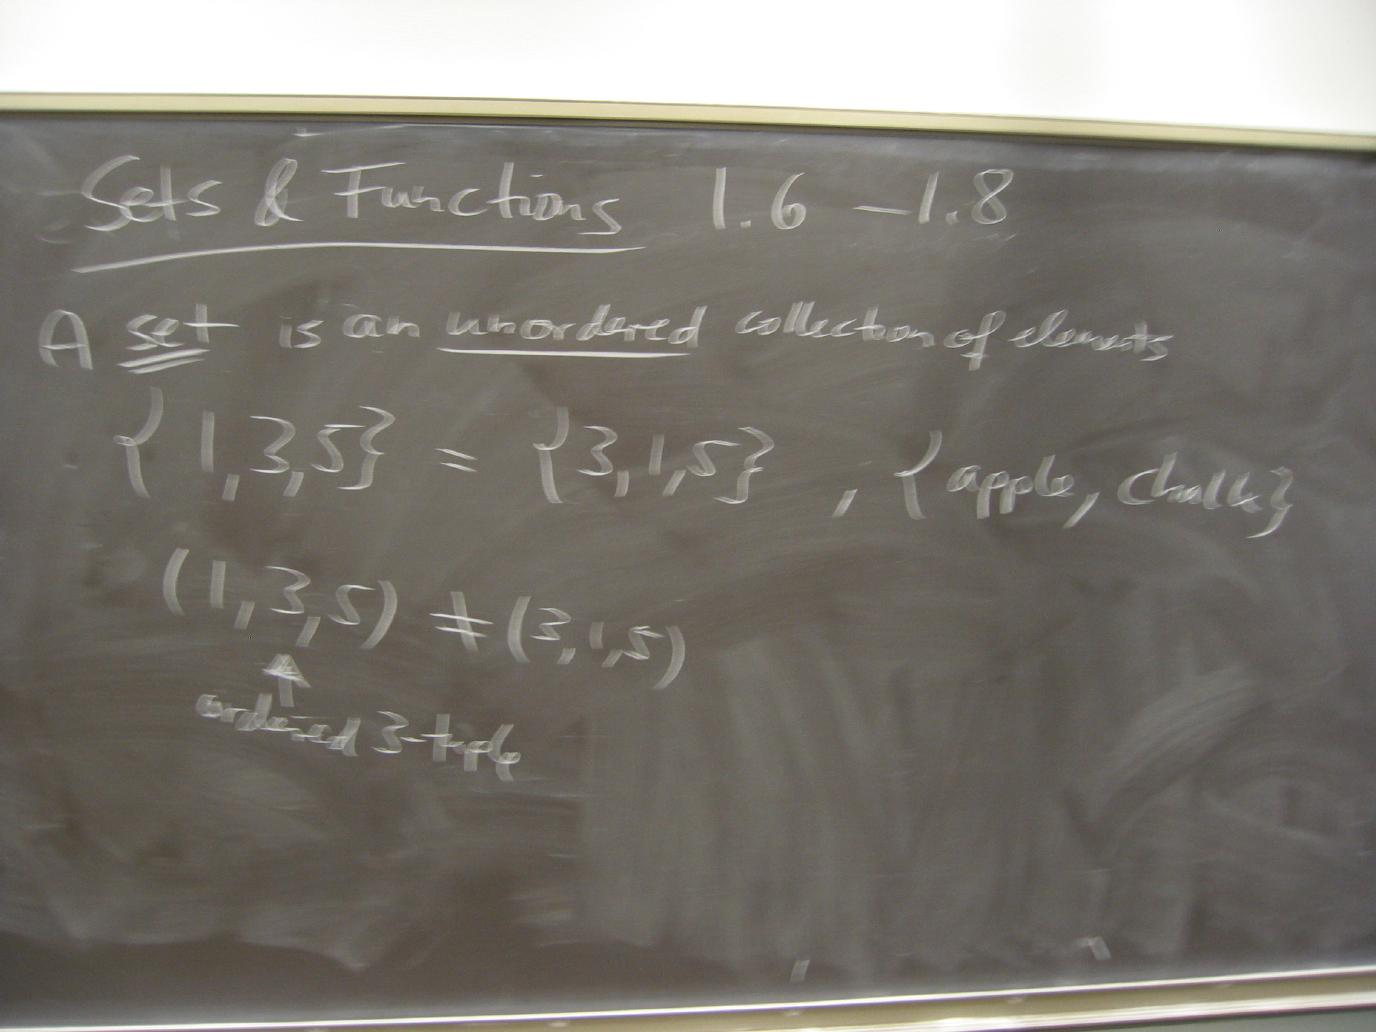 Sets & Functions 1.6 – 1.8
A set is an unordered collection of elements
{1,3,5} = {3,1,5} , {apple, chalk}
(1,3,5) ≠ (3,1,5)
ordered 3-tuple